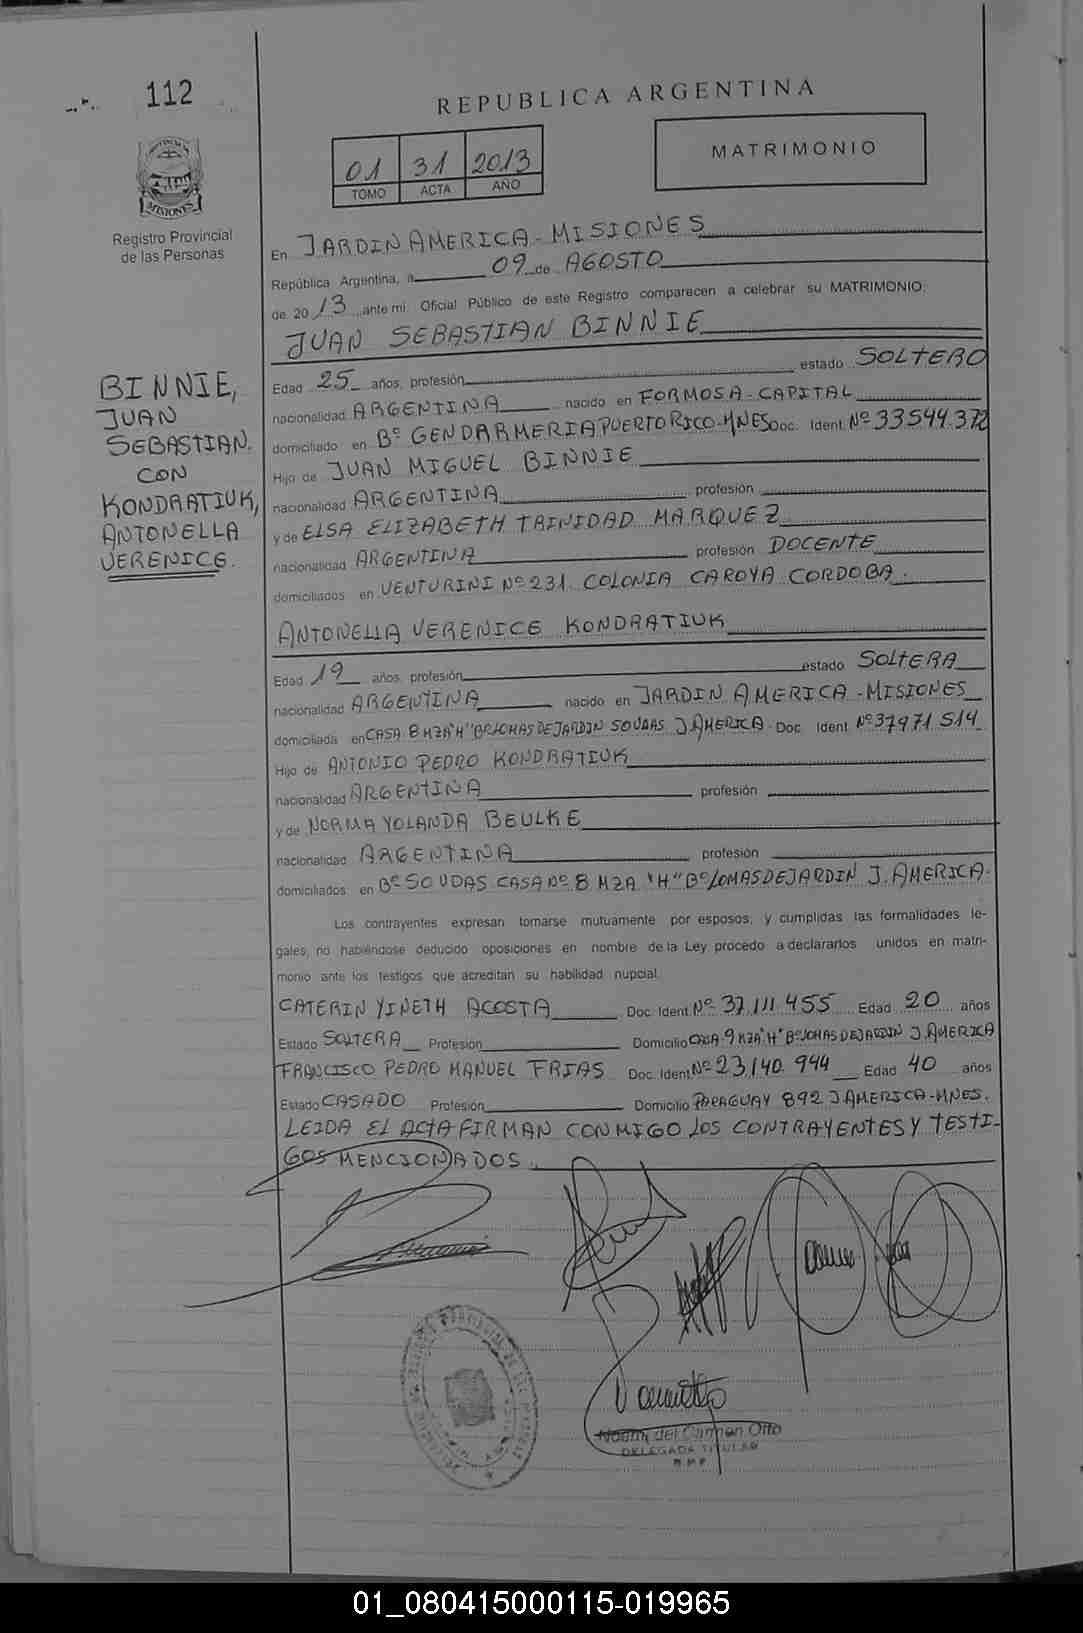 112
REPUBLICA ARGENTINA
01 31 2013
TOMO ACTA AÑO
MATRIMONIO
MISIONES
Registro Provincial
de las Personas
BINNIE,
JUAN
SEBASTIAN.
CON
KONDRATIUK,
ANTONELLA
VERENICE.
En JARDIN AMERICA - MISIONES
República Argentina, a 09 de AGOSTO
de 2013 ante mi Oficial Público de este Registro comparecen a celebrar su MATRIMONIO:
JUAN SEBASTIAN BINNIE
Edad 25 años, profesión estado SOLTERO
nacionalidad ARGENTINA nacido en FORMOSA-CAPITAL
domiciliado en Bº GENDARMERIA PUERTO RICO-MNES Doc. Ident. Nº 33544.372
Hijo de JUAN MIGUEL BINNIE
nacionalidad ARGENTINA profesión
y de ELSA ELIZABETH TRINIDAD MARQUEZ
nacionalidad ARGENTINA profesión DOCENTE
domiciliados en VENTURINI Nº 231. COLONIA CAROYA CORDOBA.
ANTONELLA VERENICE KONDRATIUK
Edad 19 años, profesión estado SOLTERA
nacionalidad ARGENTINA nacido en JARDIN AMERICA - MISIONES
domiciliada en CASA 8 MZA "H" Bº LOMAS DE JARDIN SOUDAS J. AMERICA. Doc. Ident. Nº 37971514
Hijo de ANTONIO PEDRO KONDRATIUK
nacionalidad ARGENTINA profesión
y de NORMA YOLANDA BEULKE
nacionalidad ARGENTINA profesión
domiciliados en Bº SOUDAS CASA Nº 8 MZA "H" Bº LOMAS DE JARDIN J. AMERICA.
Los contrayentes expresan tomarse mutuamente por esposos; y cumplidas las formalidades le-
gales, no habiéndose deducido oposiciones en nombre de la Ley procedo a declararlos unidos en matri-
monio ante los testigos que acreditan su habilidad nupcial.
CATERIN YINETH ACOSTA Doc. Ident. Nº 37.111.455 Edad 20 años
Estado SOLTERA Profesión Domicilio CASA 9 MZA "H" Bº LOMAS DE JARDIN J. AMERICA
FRANCISCO PEDRO MANUEL FRIAS Doc. Ident. Nº 23.140.944 Edad 40 años
Estado CASADO Profesión Domicilio PARAGUAY 892 J AMERICA-MNES.
LEIDA EL ACTA FIRMAN CONMIGO LOS CONTRAYENTES Y TESTI-
GOS MENCIONADOS.
del Carmen Otto
DELEGADA TITULAR
01_080415000115-019965